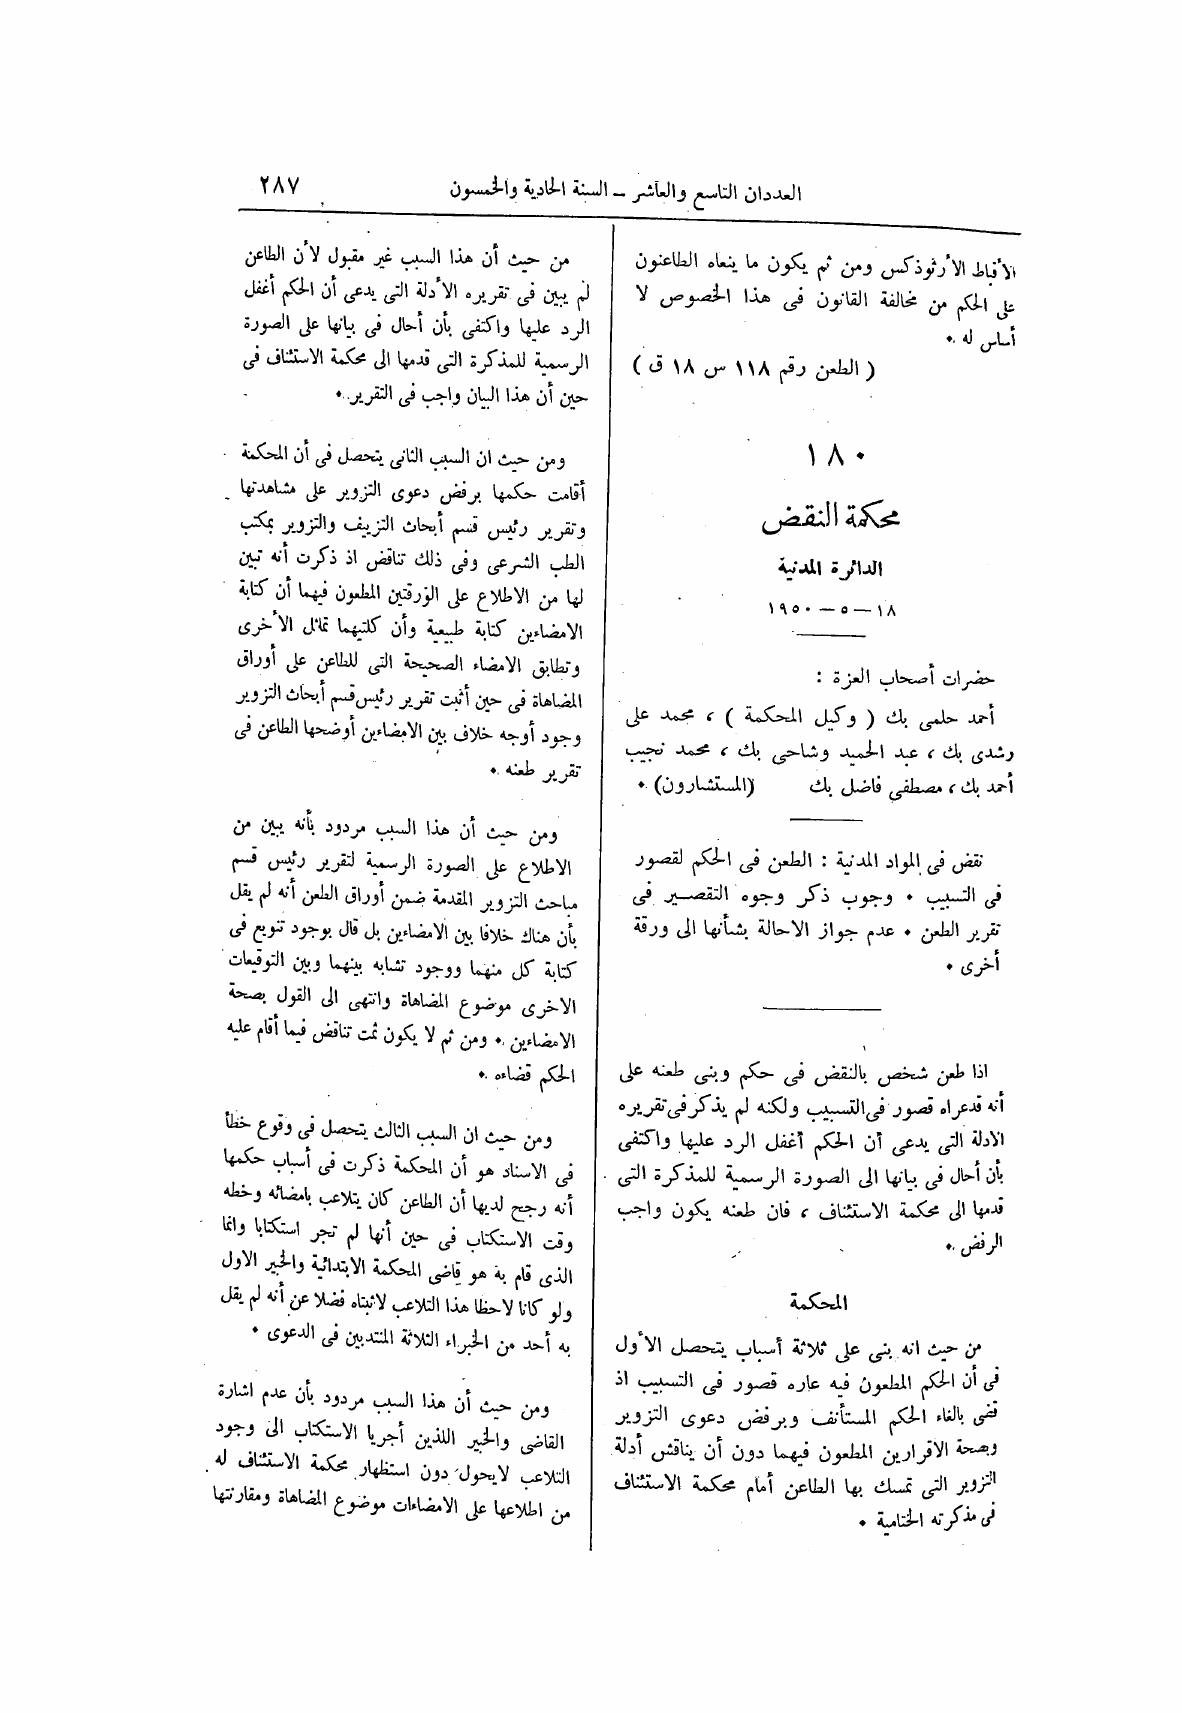 العددان التاسع والعاشر – السنة الحادية والخمسون
٢٨٧
الأقباط الأرثوذكس ومن ثم يكون ما ينعاه الطاعنون
على الحكم من مخالفة القانون فى هذا الخصوص لا
أساس له ٠
( الطعن رقم ١١٨ س ١٨ ق )
١٨٠
محكمة النقض
الدائرة المدنية
١٨ – ٥ – ١٩٥٠
حضرات أصحاب العزة :
أحمد حلمى بك ( وكيل المحكمة ) ، محمد على
رشدى بك ، عبد الحميد وشاحى بك ، محمد نجيب
أحمد بك ، مصطفى فاضل بك (المستشارون) ٠
نقض فى المواد المدنية : الطعن فى الحكم لقصور
فى التسبيب ٠ وجوب ذكر وجوه التقصير فى
تقرير الطعن ٠ عدم جواز الاحالة بشأنها الى ورقة
أخرى ٠
اذا طعن شخص بالنقض فى حكم وبنى طعنه على
أنه قد عراه قصور فى التسبيب ولكنه لم يذكر فى تقريره
الادلة التى يدعى أن الحكم أغفل الرد عليها واكتفى
بأن أحال فى بيانها الى الصورة الرسمية للمذكرة التى
قدمها الى محكمة الاستئناف ، فان طعنه يكون واجب
الرفض ٠
المحكمة
من حيث انه بنى على ثلاثة أسباب يتحصل الأول
فى أن الحكم المطعون فيه عاره قصور فى التسبيب اذ
قضى بالغاء الحكم المستأنف وبرفض دعوى التزوير
وبصحة الاقرارين المطعون فيهما دون أن يناقش أدلة
التزوير التى تمسك بها الطاعن أمام محكمة الاستئناف
فى مذكرته الختامية ٠
من حيث أن هذا السبب غير مقبول لأن الطاعن
لم يبين فى تقريره الأدلة التى يدعى أن الحكم أغفل
الرد عليها واكتفى بأن أحال فى بيانها على الصورة
الرسمية للمذكرة التى قدمها الى محكمة الاستئناف فى
حين أن هذا البيان واجب فى التقرير ٠
ومن حيث ان السبب الثانى يتحصل فى أن المحكمة
أقامت حكمها برفض دعوى التزوير على مشاهدتها
وتقرير رئيس قسم أبحاث التزييف والتزوير بمكتب
الطب الشرعى وفى ذلك تناقض اذ ذكرت أنه تبين
لها من الاطلاع على الورقتين المطعون فيهما أن كتابة
الامضاءين كتابة طبيعية وأن كلتيهما تماثل الأخرى
وتطابق الامضاء الصحيحة التى للطاعن على أوراق
المضاهاة فى حين أثبت تقرير رئيس قسم أبحاث التزوير
وجود أوجه خلاف بين الامضاءين أوضحها الطاعن فى
تقرير طعنه ٠
ومن حيث أن هذا السبب مردود بأنه يبين من
الاطلاع على الصورة الرسمية لتقرير رئيس قسم
مباحث التزوير المقدمة ضمن أوراق الطعن أنه لم يقل
بأن هناك خلافا بين الامضاءين بل قال بوجود تنويع فى
كتابة كل منهما ووجود تشابه بينهما وبين التوقيعات
الاخرى موضوع المضاهاة وانتهى الى القول بصحة
الامضاءين ٠ ومن ثم لا يكون ثمت تناقض فيما أقام عليه
الحكم قضاءه ٠
ومن حيث ان السبب الثالث يتحصل فى وقوع خطأ
فى الاسناد هو أن المحكمة ذكرت فى أسباب حكمها
أنه رجح لديها أن الطاعن كان يتلاعب بامضائه وخطه
وقت الاستكتاب فى حين أنها لم تجر استكتابا وانما
الذى قام به هو قاضى المحكمة الابتدائية والخبير الاول
ولو كانا لاحظا هذا التلاعب لاثبتاه فضلا عن أنه لم يقل
به أحد من الخبراء الثلاثة المنتدبين فى الدعوى ٠
ومن حيث أن هذا السبب مردود بأن عدم اشارة
القاضى والخبير اللذين أجريا الاستكتاب الى وجود
التلاعب لا يحول دون استظهار محكمة الاستئناف له
من اطلاعها على الامضاءات موضوع المضاهاة ومقارنتها